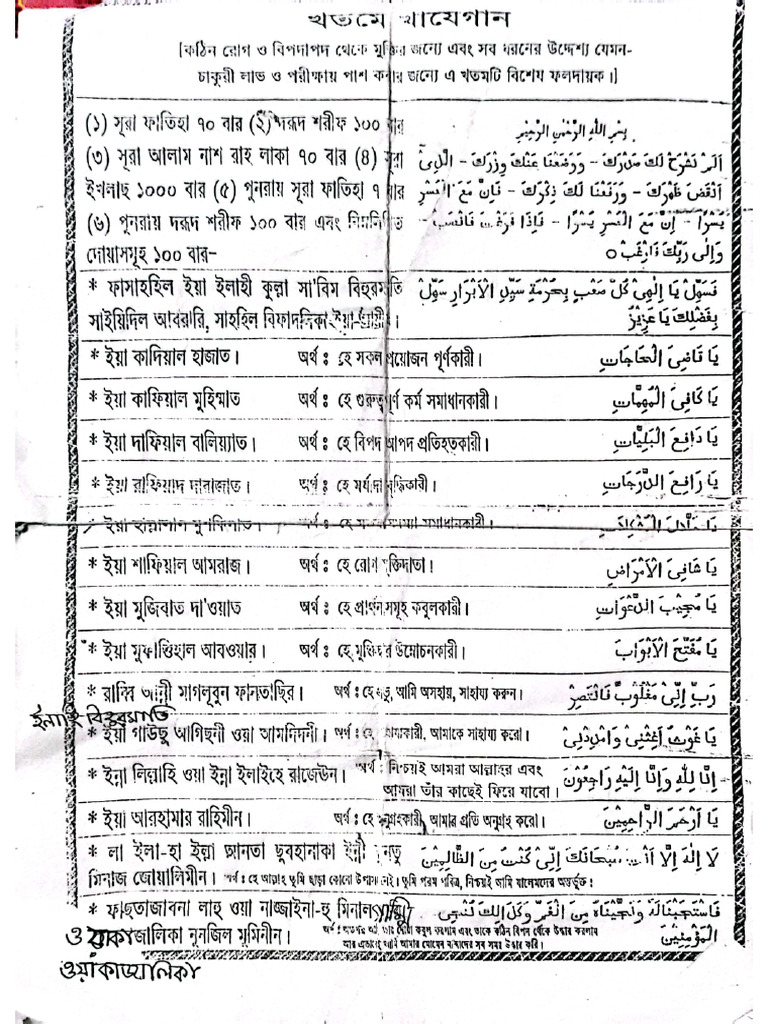 খতমে খাযেগান
[কঠিন রোগ ও বিপদাপদ থেকে মুক্তির জন্যে এবং সব ধরনের উদ্দেশ্য যেমন-
চাকুরী লাভ ও পরীক্ষায় পাশ করার জন্যে এ খতমটি বিশেষ ফলদায়ক।]
(১) সূরা ফাতিহা ৭০ বার (২) দরূদ শরীফ ১০০ বার
(৩) সূরা আলাম নাশ রাহ লাকা ৭০ বার (৪) সূরা
ইখলাছ ১০০০ বার (৫) পুনরায় সূরা ফাতিহা ৭ বার
(৬) পুনরায় দরূদ শরীফ ১০০ বার এবং নিম্নলিখিত
দোয়াসমূহ ১০০ বার-
بِسْمِ اللهِ الرَّحْمٰنِ الرَّحِيْمِ
اَلَمْ نَشْرَحْ لَكَ صَدْرَكَ - وَوَضَعْنَا عَنْكَ وِزْرَكَ - الَّذِىْ
اَنْقَضَ ظَهْرَكَ - وَرَفَعْنَا لَكَ ذِكْرَكَ - فَاِنَّ مَعَ الْعُسْرِ
يُسْرًا - اِنَّ مَعَ الْعُسْرِ يُسْرًا - فَاِذَا فَرَغْتَ فَانْصَبْ -
وَاِلٰى رَبِّكَ فَارْغَبْ ○
* ফাসাহহিল ইয়া ইলাহী কুল্লা সা'বিম বিহুরমাতি
সাইয়িদিল আবরারি, সাহহিল বিফাদলিকা ইয়া
فَسَهِّلْ يَا اِلٰهِىْ كُلَّ صَعْبٍ بِحُرْمَةِ سَيِّدِ الْاَبْرَارِ سَهِّلْ
بِفَضْلِكَ يَا عَزِيْزُ
* ইয়া কাদিয়াল হাজাত। অর্থ ঃ হে সকল প্রয়োজন পূর্ণকারী। يَا قَاضِىَ الْحَاجَاتِ
* ইয়া কাফিয়াল মুহিম্মাত অর্থ ঃ হে গুরুত্বপূর্ণ কর্ম সমাধানকারী। يَا كَافِىَ الْمُهِمَّاتِ
* ইয়া দাফিয়াল বালিয়্যাত। অর্থ ঃ হে বিপদ আপদ প্রতিহতকারী। يَا دَافِعَ الْبَلِيَّاتِ
* ইয়া রাফিয়াদ দারাজাত। অর্থ ঃ হে মর্যাদা বৃদ্ধিকারী। يَا رَافِعَ الدَّرَجَاتِ
* ইয়া অর্থ ঃ হে সমাধানকারী।
* ইয়া শাফিয়াল আমরাজ। অর্থ ঃ হে রোগ মুক্তিদাতা। يَا شَافِىَ الْاَمْرَاضِ
* ইয়া মুজিবাত দা'ওয়াত অর্থ ঃ হে প্রার্থনাসমূহ কবুলকারী। يَا مُجِيْبَ الدَّعْوَاتِ
* ইয়া মুফাত্তিহাল আবওয়াব। অর্থ ঃ হে উম্মোচনকারী। يَا مُفَتِّحَ الْاَبْوَابِ
* রাব্বি আন্নী মাগলূবুন ফানতাছির। অর্থ ঃ হে প্রভু, আমি অসহায়, সাহায্য করুন। رَبِّ اِنِّىْ مَغْلُوْبٌ فَانْتَصِرْ
ইলাহি বিহুরমাতি
* ইয়া গাউছু আগিছনী ওয়া আমদিদনী। অর্থ ঃ হে সাহায্যকারী, আমাকে সাহায্য করো। يَا غَوْثُ اَغِثْنِىْ وَامْدُدْنِىْ
* ইন্না লিল্লাহি ওয়া ইন্না ইলাইহে রাজেউন। অর্থ ঃ নিশ্চয়ই আমরা আল্লাহর এবং
আমরা তাঁর কাছেই ফিরে যাবো। اِنَّا لِلّٰهِ وَاِنَّا اِلَيْهِ رَاجِعُوْنَ
* ইয়া আরহামার রাহিমীন। অর্থ ঃ হে অনুগ্রহকারী, আমার প্রতি অনুগ্রহ করো। يَا اَرْحَمَ الرَّاحِمِيْنَ
* লা ইলা-হা ইল্লা আনতা ছুবহানাকা ইন্নী কুনতু
মিনাজ জোয়ালিমীন। অর্থ ঃ হে আল্লাহ তুমি ছাড়া কোনো উপাস্য নাই। তুমি পরম পবিত্র, নিশ্চয়ই আমি যালেমদের অন্তর্ভুক্ত।
لَا اِلٰهَ اِلَّا اَنْتَ سُبْحَانَكَ اِنِّىْ كُنْتُ مِنَ الظَّالِمِيْنَ
* ফাছতাজাবনা লাহু ওয়া নাজ্জাইনা-হু মিনাল গাম্মি
ওয়াকাজালিকা নুনজিল মুমিনীন।
فَاسْتَجَبْنَالَهٗ وَنَجَّيْنَاهُ مِنَ الْغَمِّ وَكَذَالِكَ نُنْجِى
الْمُؤْمِنِيْنَ
ওয়াকাজালিকা